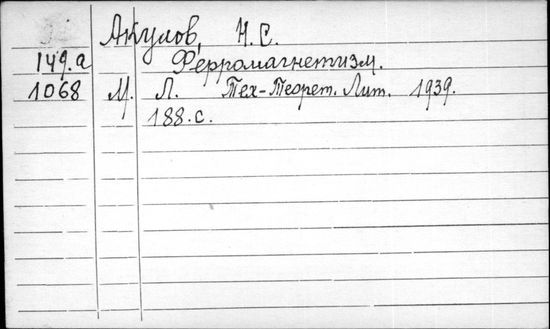 Акулов, Н. С.
149.а Ферромагнетизм.
1068 М. Л. Тех-Теорет. Лит. 1939.
188.с.